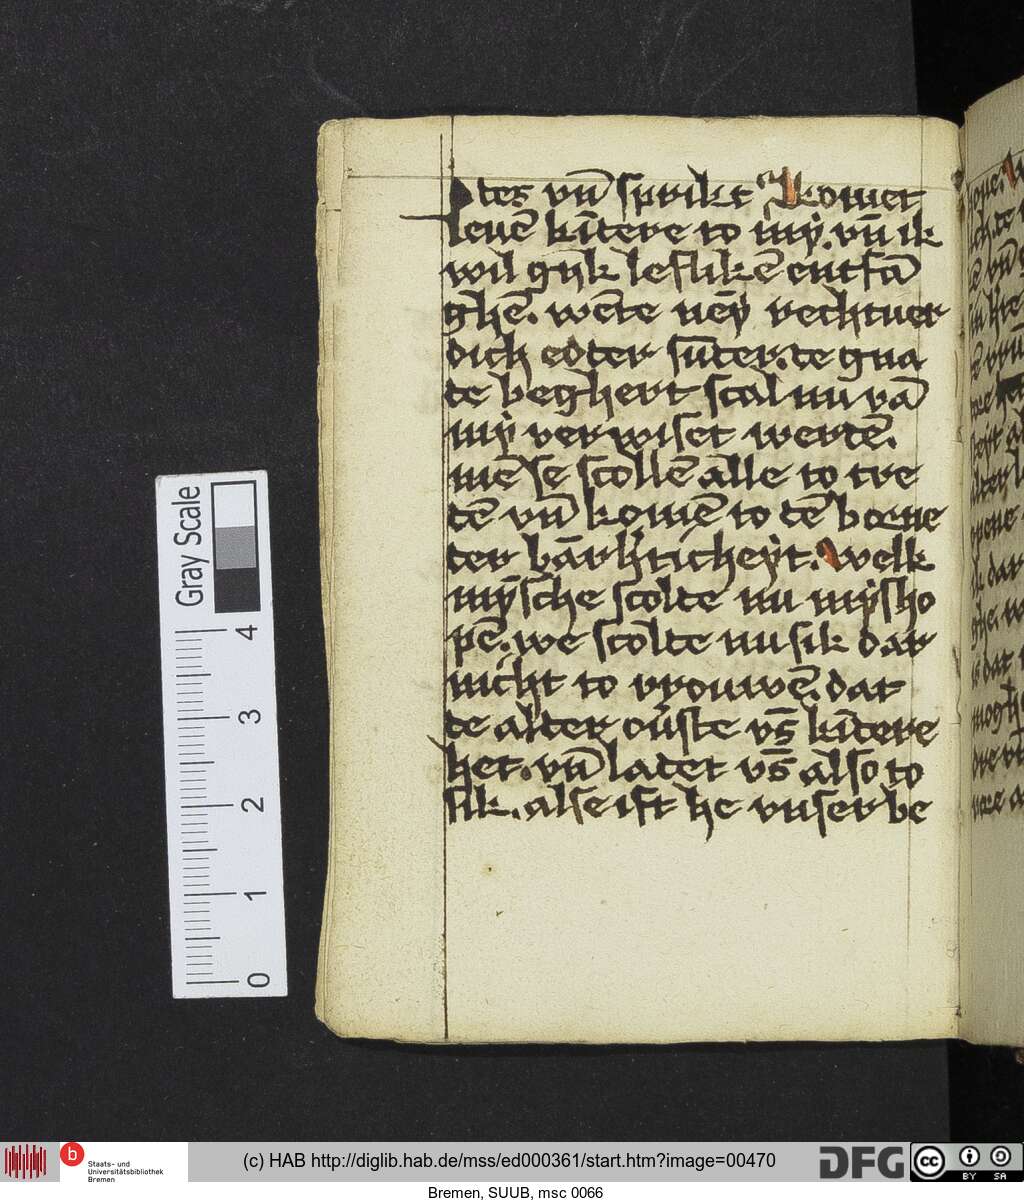 des vn̄ sprikt Komet
leuē kīdere to mẏ. vn̄ ik
wil gyk leflikē entfā
ghē. wēte nēy rechtuer
dich edder sūder. de gna
de beghert scal nu vā
mẏ verwiset werdē.
mē se scollē alle to tre
dē vn̄ komē to dē borne
der bārh'ticheẏt. Welk
mȳsche scolde nu mẏsho
pē. we scolde nu sik dar
nicht to vrouwē. dat
de alder ou'ste vs̄ kīdere
het. vn̄ ladet vs̄ also to
sik. alse ift he vnser be
Gray Scale
4
3
2
1
0
b Staats- und
Universitätsbibliothek
Bremen
(c) HAB http://diglib.hab.de/mss/ed000361/start.htm?image=00470
DFG
cc BY SA
Bremen, SUUB, msc 0066